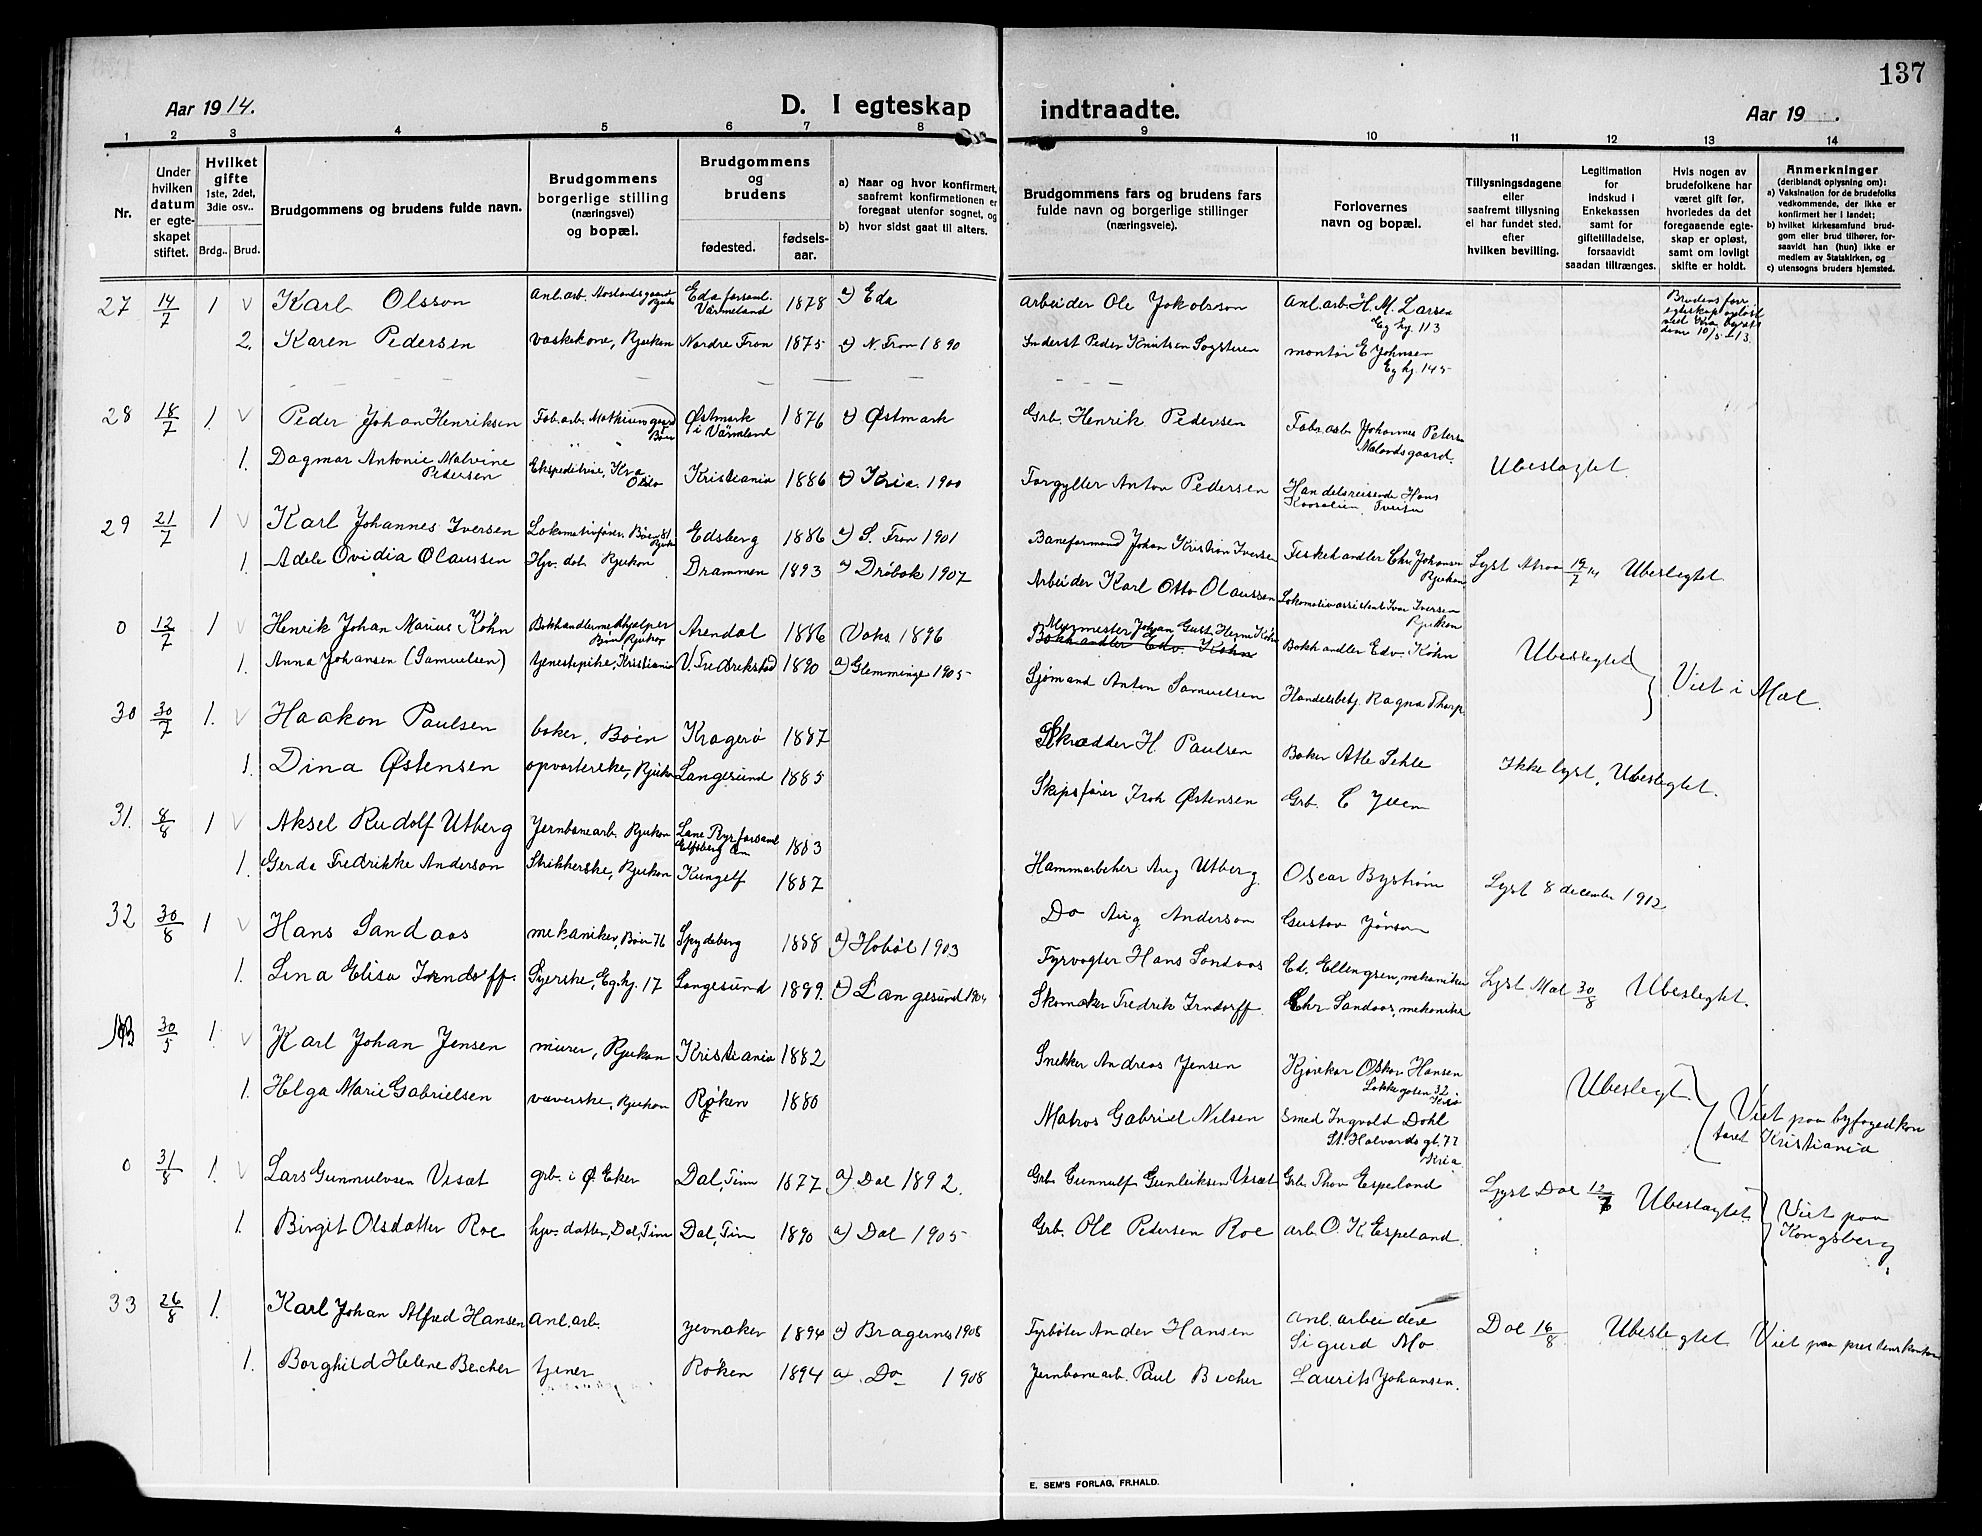 137
Aar 1914.
D. I egteskap indtraadte.
Aar 19 .
1 2 3 4 5 6 7 8 9 10 11 12 13 14
Nr.
Under hvilken datum er egte-skapet stiftet.
Hvilket gifte 1ste, 2det, 3die osv..
Brdg.. Brud.
Brudgommens og brudens fulde navn.
Brudgommens borgerlige stilling (næringsvei) og bopæl.
Brudgommens og brudens
fødested. fødsels-aar.
a) Naar og hvor konfirmert, saafremt konfirmationen er foregaat utenfor sognet, og
b) hvor sidst gaat til alters.
Brudgommens fars og brudens fars fulde navn og borgerlige stillinger (næringsveie).
Forlovernes navn og bopæl.
Tillysningsdagene eller saafremt tillysning ei har fundet sted, efter hvilken bevilling.
Legitimation for Indskud i Enkekassen samt for giftetilladelse, forsaavidt saadan tiltrænges.
Hvis nogen av brudefolkene har været gift før, hvorledes da det foregaaende egte-skap er opløst, samt om lovligt skifte er holdt.
Anmerkninger (deriblandt oplysning om):
a) Vaksination for de brudefolks vedkommende, der ikke er konfirmert her i landet;
b) hvilket kirkesamfund brud-gom eller brud tilhører, for-saavidt han (hun) ikke er medlem av Statskirken, og
c) utensogns bruders hjemsted.
27 14/7 1 v Karl Olsson Anl.arb. Eda forsaml. Värmeland 1878 a) Eda Arbeider Ole Jakobsson Anl.arb. H. M. Larsen Eg hj. 113
2. Karen Pedersen vaskekone, Rjukan Nordre Fron 1875 a) N. Fron 1890 Inderst Peder Knutsen montør E Johnsen Eg hj. 145
28 18/7 1. v Peder Johan Henriksen Fab.arb. Østmark i Värmland 1876 a) Østmark Grb. Henrik Pedersen Fabr.arb. Johannes Peters
1. Dagmar Antonie Malvine Pedersen Ekspeditrise, Kristiania 1886 a) Kria. 1900 Forgylter Anton Pedersen Handelsreisende Hans Ubeslægtet
29 21/7 1 v Karl Johannes Iversen Lokomotivfører, Bøen 81 Rjukan Eidsberg 1886 a) S. Fron 1901 Baneformand Johan Kristian Iversen Fiskehandler Chr. Johansen Rjukan Lyst 19/7 14 Ubeslegtet
1. Adele Ovidia Olaussen Hjv. dat. Rjukan Drammen 1893 a) Drøbak 1907 Arbeider Karl Otto Olaussen Lokomotivassistent Ivar Iversen Rjukan
0 12/7 1 v Henrik Johan Marius Køhn Bokhandlermedhjælper Bøen, Rjukan Arendal 1886 Vaks 1896 Murmester Johan Gust. Herm Køhn Bokhandler Edv. Køhn Bokhandler Edv. Køhn Ubeslegtet
1. Anna Johansen (Samuelsen) tjenestepike, Kristiania V. Fredrikstad 1890 a) Glemminge 1905 Sjømand Anton Samuelsen Handelsbetj. Ragna Thorp. Viet i Mæl.
30 30/7 1. v Haakon Paulsen baker, Bøen Kragerø 1887 Skrædder H. Paulsen Baker Atle Sehle Ikke lyst, Ubeslegtet.
1. Dina Østensen opvarterske, Rjukan Langesund 1885 Skipsfører Østensen Grb. C
31. 8/8 1 v Aksel Rudolf Utberg Jernbanearb. Rjukan 1883 Aug Utberg. Oscar Bystrøm Lyst 8 december 1912
1. Gerda Fredrikke Anderson Strikkerske, Rjukan Kungelf 1887 Do Aug Anderson Gustav Jønson
32 30/8 1 v Hans Sandaas mekaniker, Bøen 76 Spydeberg 1888 a) Hobøl 1903 Fyrvogter Hans Sandaas Ed. Ellengren, mekaniker Lyst Mæl 30/8 Ubeslegtet.
1. Lina Elisa Irndorff. Syerske, Eg.hj. 17 Langesund 1899. a) Langesund 1904 Skomaker Fredrik Irndorff. Chr Sandaas, mekaniker
30/5 1. v Karl Johan Jensen murer, Rjukan Kristiania 1882 Snekker Andreas Jensen Kjørekar Oskar Hansen Ubeslegt.
1. Helga Marie Gabrielsen væverske, Rjukan Røken 1880 Matros Gabriel Nilsen Smed Ingvald Dahl St. Halvards gt. 77 Kria Viet paa byfogedkontoret Kristiania
0 31/8 1. v Lars Gunnulvsen Visæt grb. i Ø. Eker Dal, Tinn 1877 a) Dal 1892. Grb. Gunnulf Gunleiksen Visæt Grb. Thov Espeland Lyst Dal 12/7 Ubeslægtet.
1. Birgit Olsdatter Roe hjv. datter, Dal, Tinn Dal, Tinn 1890 a) Dal 1905 Grb. Ole Pedersen Roe arb. O. K. Espeland. Viet paa Kongsberg
33 26/8 1. Karl Johan Alfred Hansen Anl.arb. Jevnaker 1894 a) Bragernes 1908 Fyrbøter Ander Hansen Anl. arbeidere Sigurd Mo Dal 16/8 Ubeslegtet Viet paa prestens kontor
1. Borghild Helene Becher tjener Røken 1894 a) Do 1908 Jernbanearb. Paul Becher Laurits Johansen.
E. SEM'S FORLAG, FR.HALD.